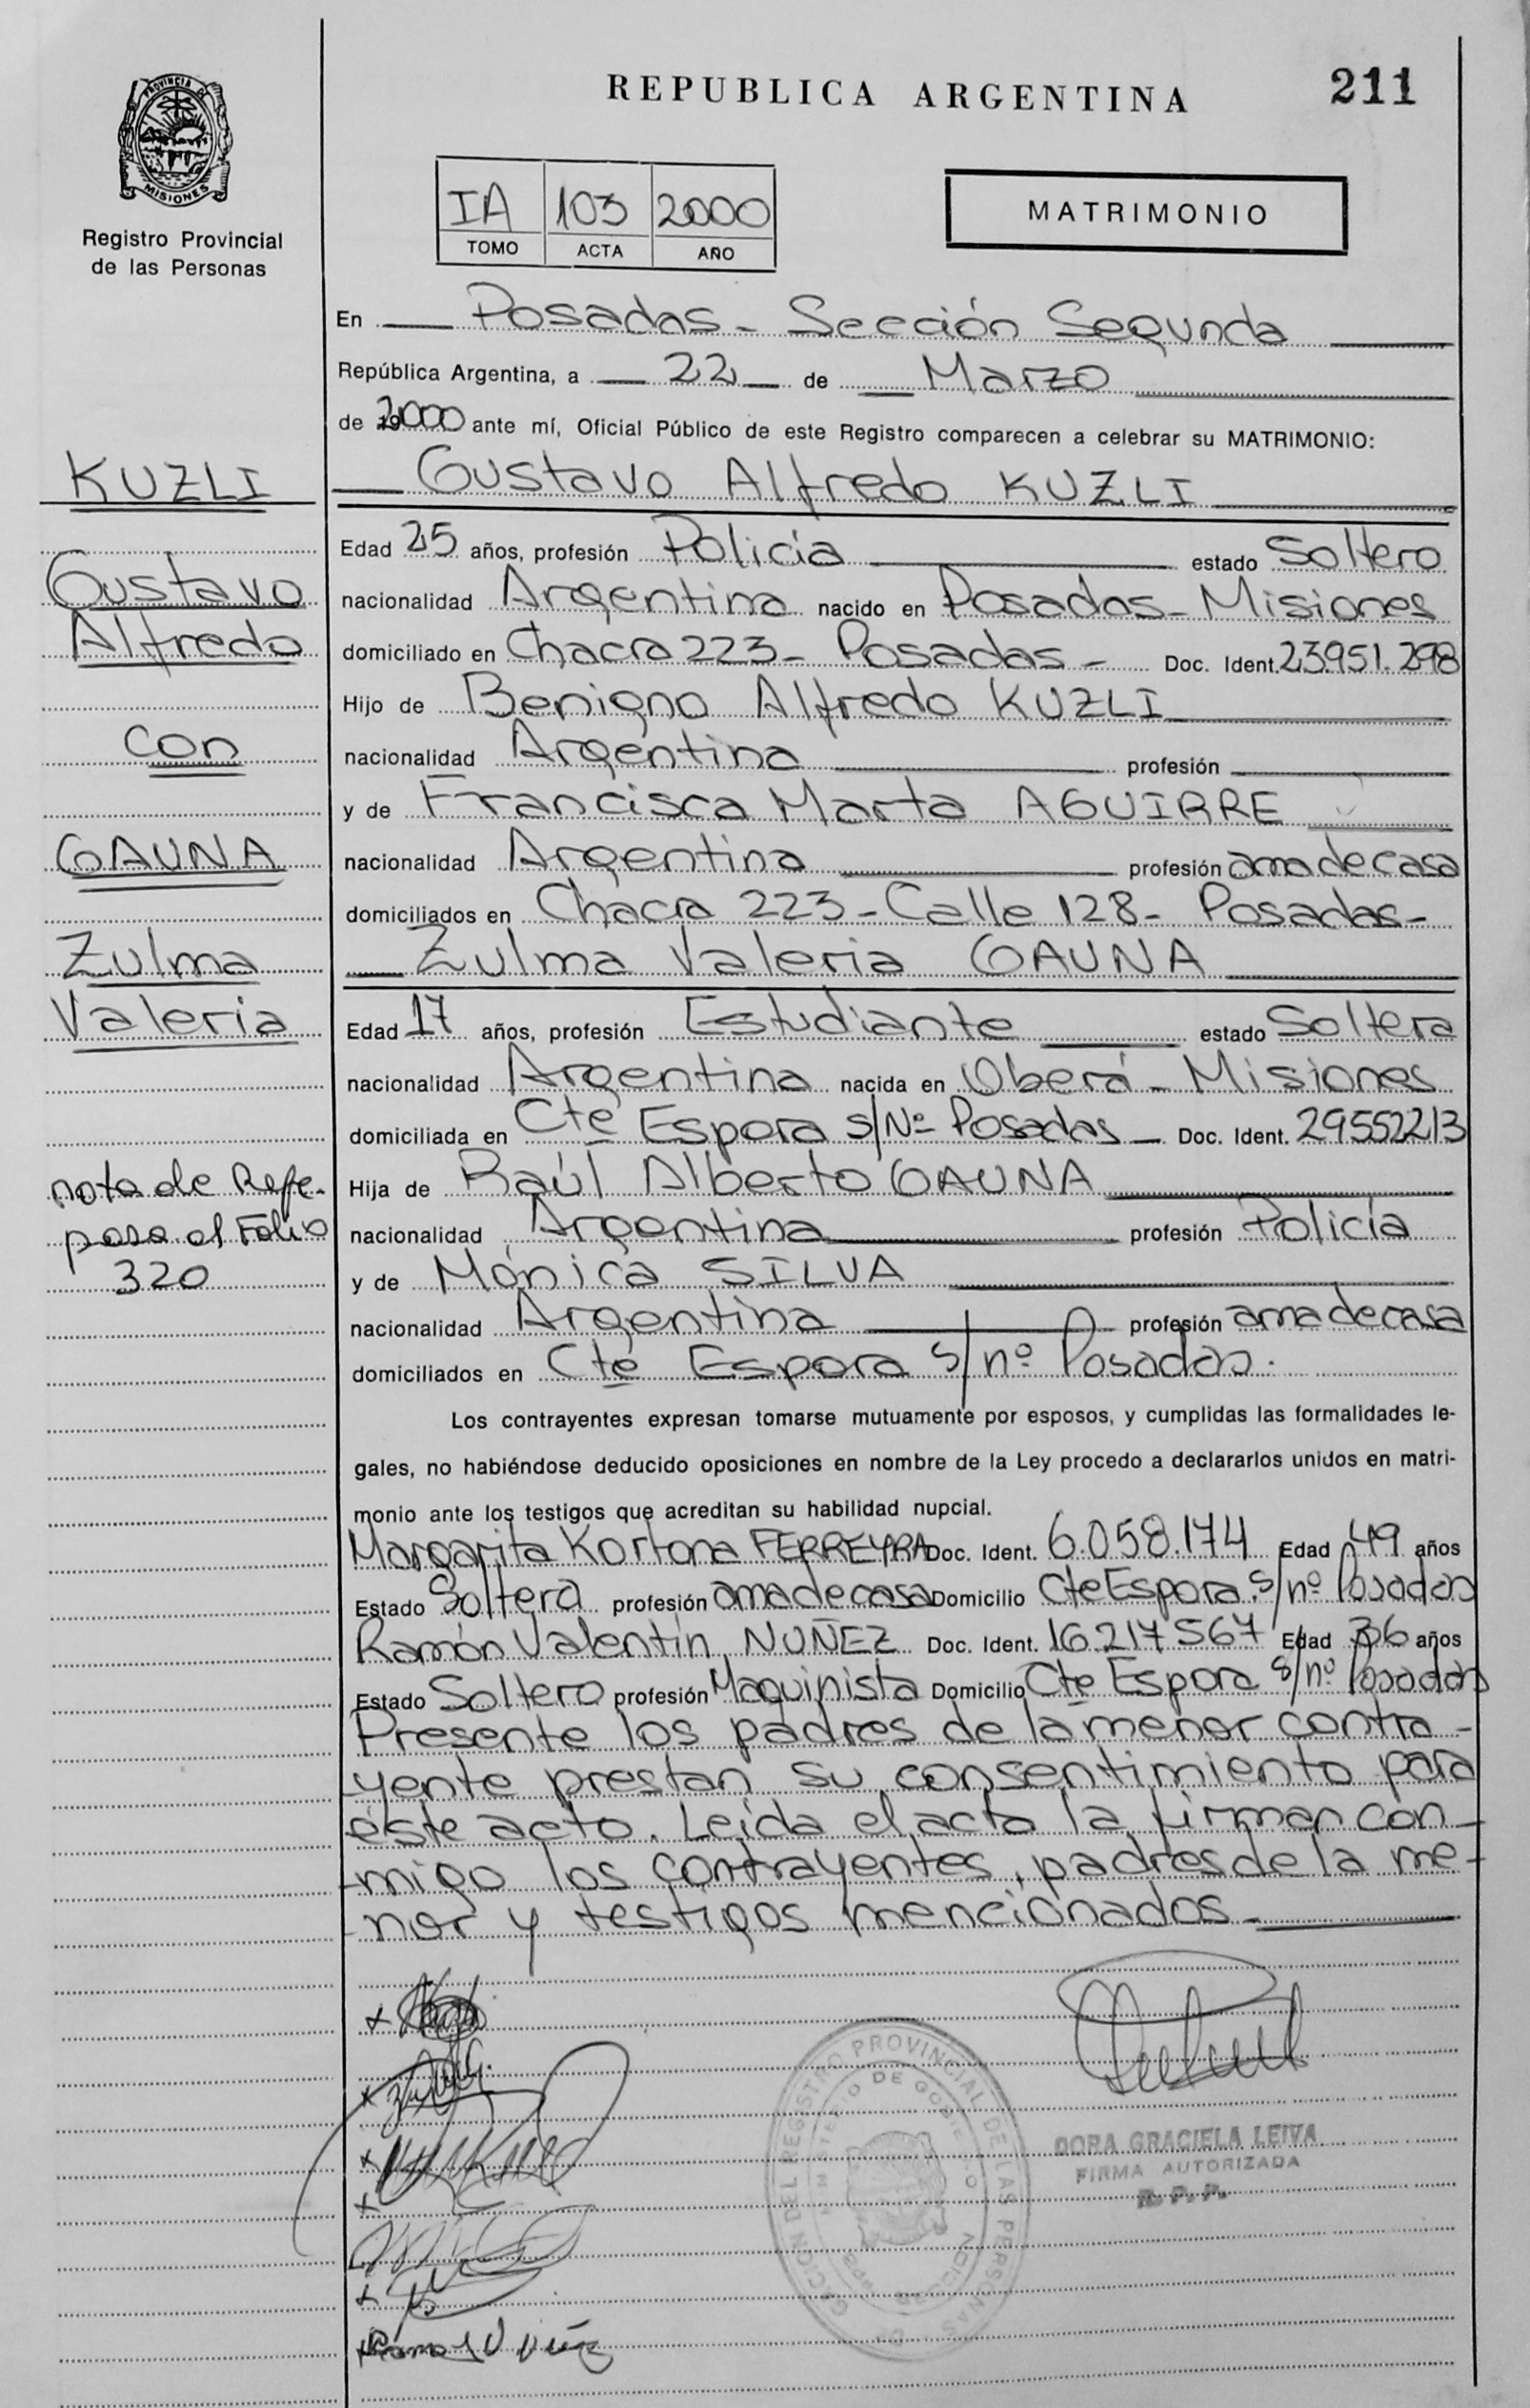 REPUBLICA ARGENTINA
211
PROVINCIA DE
MISIONES
Registro Provincial
de las Personas
IA 103 2000
TOMO ACTA AÑO
MATRIMONIO
En Posadas - Sección Segunda
República Argentina, a 22 de Marzo
de 2000 ante mí, Oficial Público de este Registro comparecen a celebrar su MATRIMONIO:
KUZLI
Gustavo
Alfredo
con
GAUNA
Zulma
Valeria
nota de Refe-
para al Folio
320
Gustavo Alfredo KUZLI
Edad 25 años, profesión Policía estado Soltero
nacionalidad Argentina nacido en Posadas - Misiones
domiciliado en Chacra 223 - Posadas - Doc. Ident. 23.951.298
Hijo de Benigno Alfredo KUZLI
nacionalidad Argentina profesión
y de Francisca Marta AGUIRRE
nacionalidad Argentina profesión ama de casa
domiciliados en Chacra 223 - Calle 128 - Posadas -
Zulma Valeria GAUNA
Edad 17 años, profesión Estudiante estado Soltera
nacionalidad Argentina nacida en Oberá - Misiones
domiciliada en Cte Espora s/Nº Posadas - Doc. Ident. 29552213
Hija de Raúl Alberto GAUNA
nacionalidad Argentina profesión Policía
y de Mónica SILVA
nacionalidad Argentina profesión ama de casa
domiciliados en Cte Espora s/nº Posadas.
Los contrayentes expresan tomarse mutuamente por esposos, y cumplidas las formalidades le-
gales, no habiéndose deducido oposiciones en nombre de la Ley procedo a declararlos unidos en matri-
monio ante los testigos que acreditan su habilidad nupcial.
Margarita Kortona FERREYRA Doc. Ident. 6.058.174 Edad 49 años
Estado Soltera profesión ama de casa Domicilio Cte Espora s/nº Posadas
Ramón Valentín NUÑEZ Doc. Ident. 16.217567 Edad 36 años
Estado Soltero profesión Maquinista Domicilio Cte Espora s/nº Posadas
Presente los padres de la menor contra-
yente prestan su consentimiento para
éste acto. Leída el acta la firman con-
-migo los contrayentes, padres de la me-
-nor y testigos mencionados -
REGISTRO PROVINCIAL DE LAS PERSONAS
MINISTERIO DE GOBIERNO
DORA GRACIELA LEIVA
FIRMA AUTORIZADA
R. P. P.